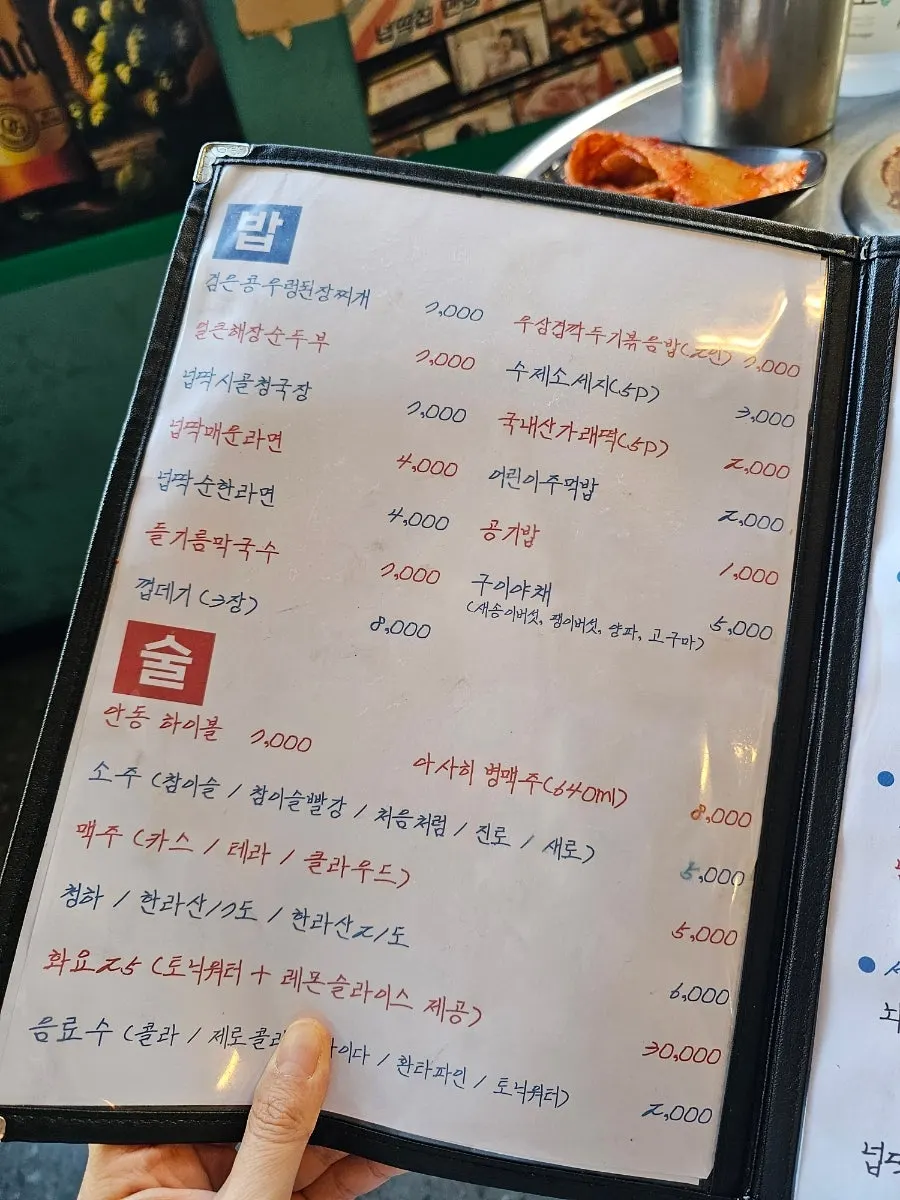 밥
검은콩우렁된장찌개 7,000
얼큰해장순두부 7,000
넙딱시골청국장 7,000
넙딱매운라면 4,000
넙딱순한라면 4,000
들기름막국수 7,000
껍데기 (3장) 8,000
우삼겹깍두기볶음밥(2인) 7,000
수제소세지(5P) 3,000
국내산가래떡(5P) 2,000
어린이주먹밥 2,000
공기밥 1,000
구이야채 5,000
(새송이버섯, 팽이버섯, 양파, 고구마)
술
안동 하이볼 7,000
아사히 병맥주(640ml) 8,000
소주 (참이슬 / 참이슬빨강 / 처음처럼 / 진로 / 새로) 5,000
맥주 (카스 / 테라 / 클라우드) 5,000
청하 / 한라산17도 / 한라산21도 6,000
화요25 (토닉워터 + 레몬슬라이스 제공) 30,000
음료수 (콜라 / 제로콜라 이다 / 환타파인 / 토닉워터) 2,000